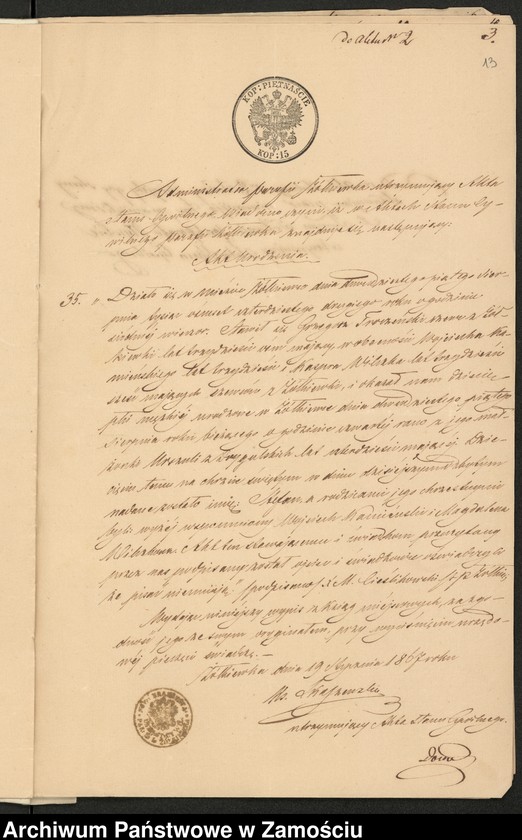 do aktu Nr 2
3.
13
KOP: PIĘTNAŚCIE
KOP: 15
Administrator parafii Żółkiewka utrzymujący Akta
Stanu Cywilnego wiadomo czyni, iż w Aktach Stanu Cy-
wilnego parafii Żółkiewka znajduje się następujący:
Akt Urodzenia.
35. Działo się w mieście Żółkiewce dnia dwudziestego piątego Sier-
pnia tysiąc ośmset czterdziestego drugiego roku o godzinie
siódmej wieczor. Stawił się Grzegorz szewc z Żół-
kiewki lat trzydzieści ośm mający w obecności Wojciecha Ka-
mińskiego lat trzydzieści i Kacpra Wilzaka lat trzydzieści
sześć mających szewców z Żółkiewki, i okazał nam dziecie
płci męzkiej urodzone w Żółkiewce dnia dwudziestego piątego
Sierpnia roku bieżącego o godzinie czwartej rano z jego mał-
żonki Urszuli z lat czterdzieści mającej. Dzie-
cięciu temu na chrzcie świętym w dniu dzisiejszym odbytym
nadane zostało imię Stefan, a rodzicami jego chrzestnymi
byli wyżej wspomniony Wojciech Kamiński i Magdalena
Akt ten stawającemu i świadkom przeczytany
przez nas podpisany został ojciec i świadkowie oświadczyli
że pisać nieumieją. (podpisano) X. M. Cieślikowski
Wydając niniejszy wypis z ksiąg miejscowych, za zgo-
dność jego ze swym oryginałem przy wyciśnięciu urzędo-
wej pieczęci świadczę.—
Żółkiewka dnia 19 Stycznia 1867 roku
Ks.
utrzymujący Akta Stanu Cywilnego.
Archiwum Państwowe w Zamościu